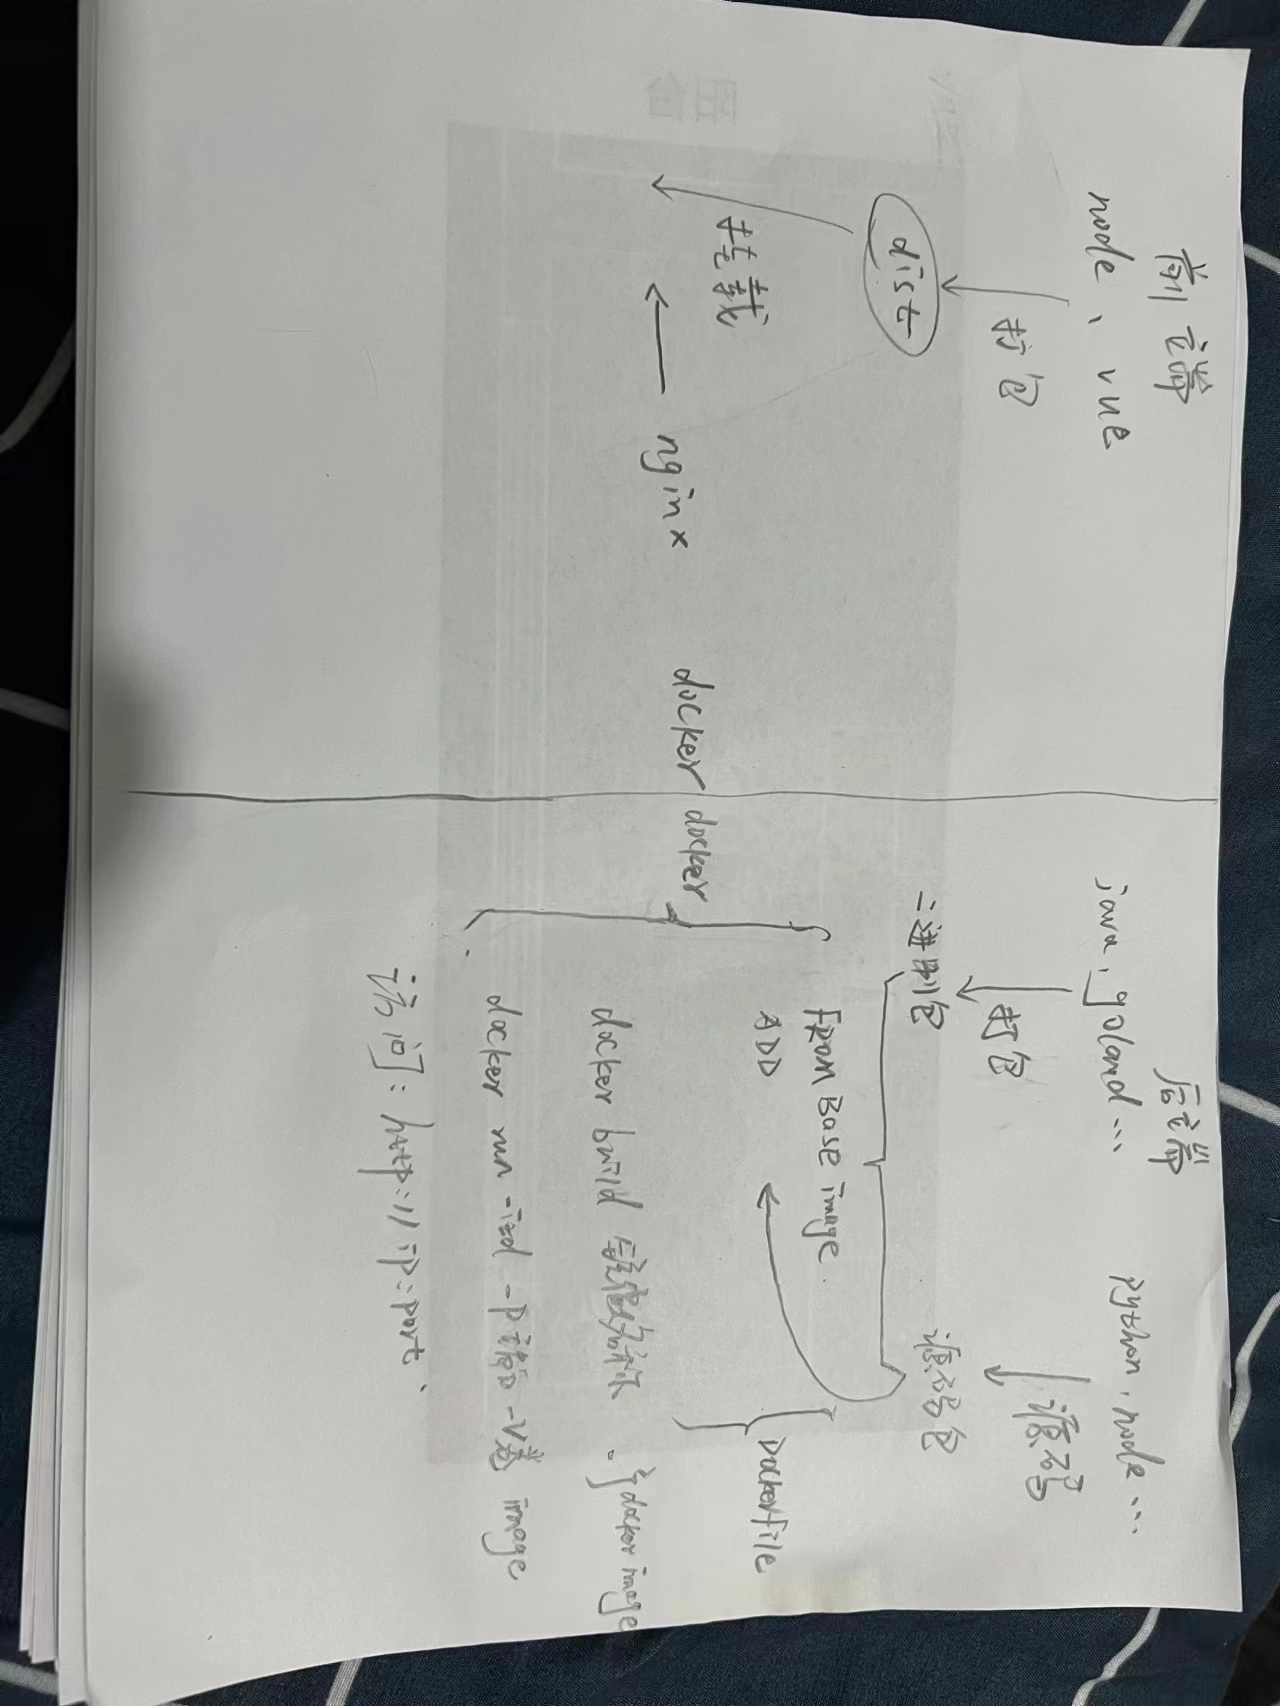 前端
node、vue
打包
dist
挂载
nginx
docker
后端
java, goland ...
python, node ...
打包
源码
二进制包
源码包
FROM Base image.
ADD
Dockerfile
docker
docker build 镜像名称 .
docker image
docker run -itd -p 端口 -v 卷 image
访问: http://ip:port.